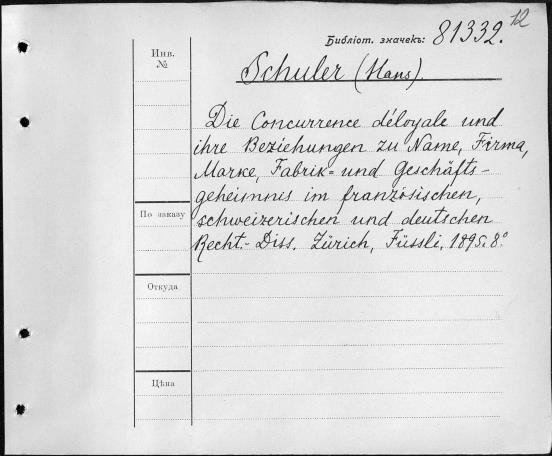 12
Библіот. значекъ: 81332.
Инв.
№
Schuler (Hans).
Die Concurrence déloyale und
ihre Beziehungen zu Name, Firma,
Marke, Fabrik- und Geschäfts-
geheimnis im französischen,
По заказу
schweizerischen und deutschen
Recht.- Diss. Zürich, Füssli, 1895. 8°.
Откуда
Цѣна